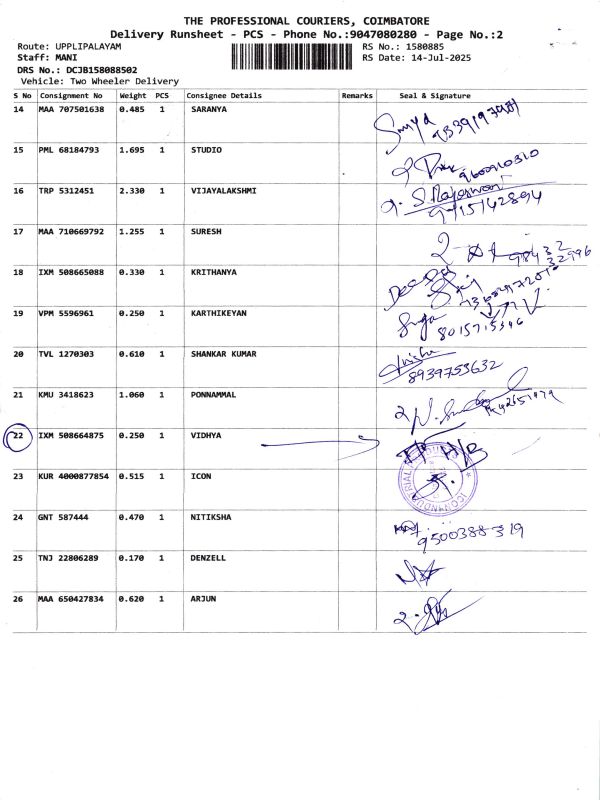 THE PROFESSIONAL COURIERS, COIMBATORE
Delivery Runsheet - PCS - Phone No.:9047080280 - Page No.:2
Route: UPPLIPALAYAM RS No.: 1580885
Staff: MANI RS Date: 14-Jul-2025
DRS No.: DCJB158088502
Vehicle: Two Wheeler Delivery
S No Consignment No Weight PCS Consignee Details Remarks Seal & Signature
14 MAA 707501638 0.485 1 SARANYA
15 PML 68184793 1.695 1 STUDIO
16 TRP 5312451 2.330 1 VIJAYALAKSHMI
17 MAA 710669792 1.255 1 SURESH
18 IXM 508665088 0.330 1 KRITHANYA
19 VPM 5596961 0.250 1 KARTHIKEYAN
20 TVL 1270303 0.610 1 SHANKAR KUMAR 8939753632
21 KMU 3418623 1.060 1 PONNAMMAL
22 IXM 508664875 0.250 1 VIDHYA
23 KUR 4000877854 0.515 1 ICON
24 GNT 587444 0.470 1 NITIKSHA 9500388319
25 TNJ 22806289 0.170 1 DENZELL
26 MAA 650427834 0.620 1 ARJUN